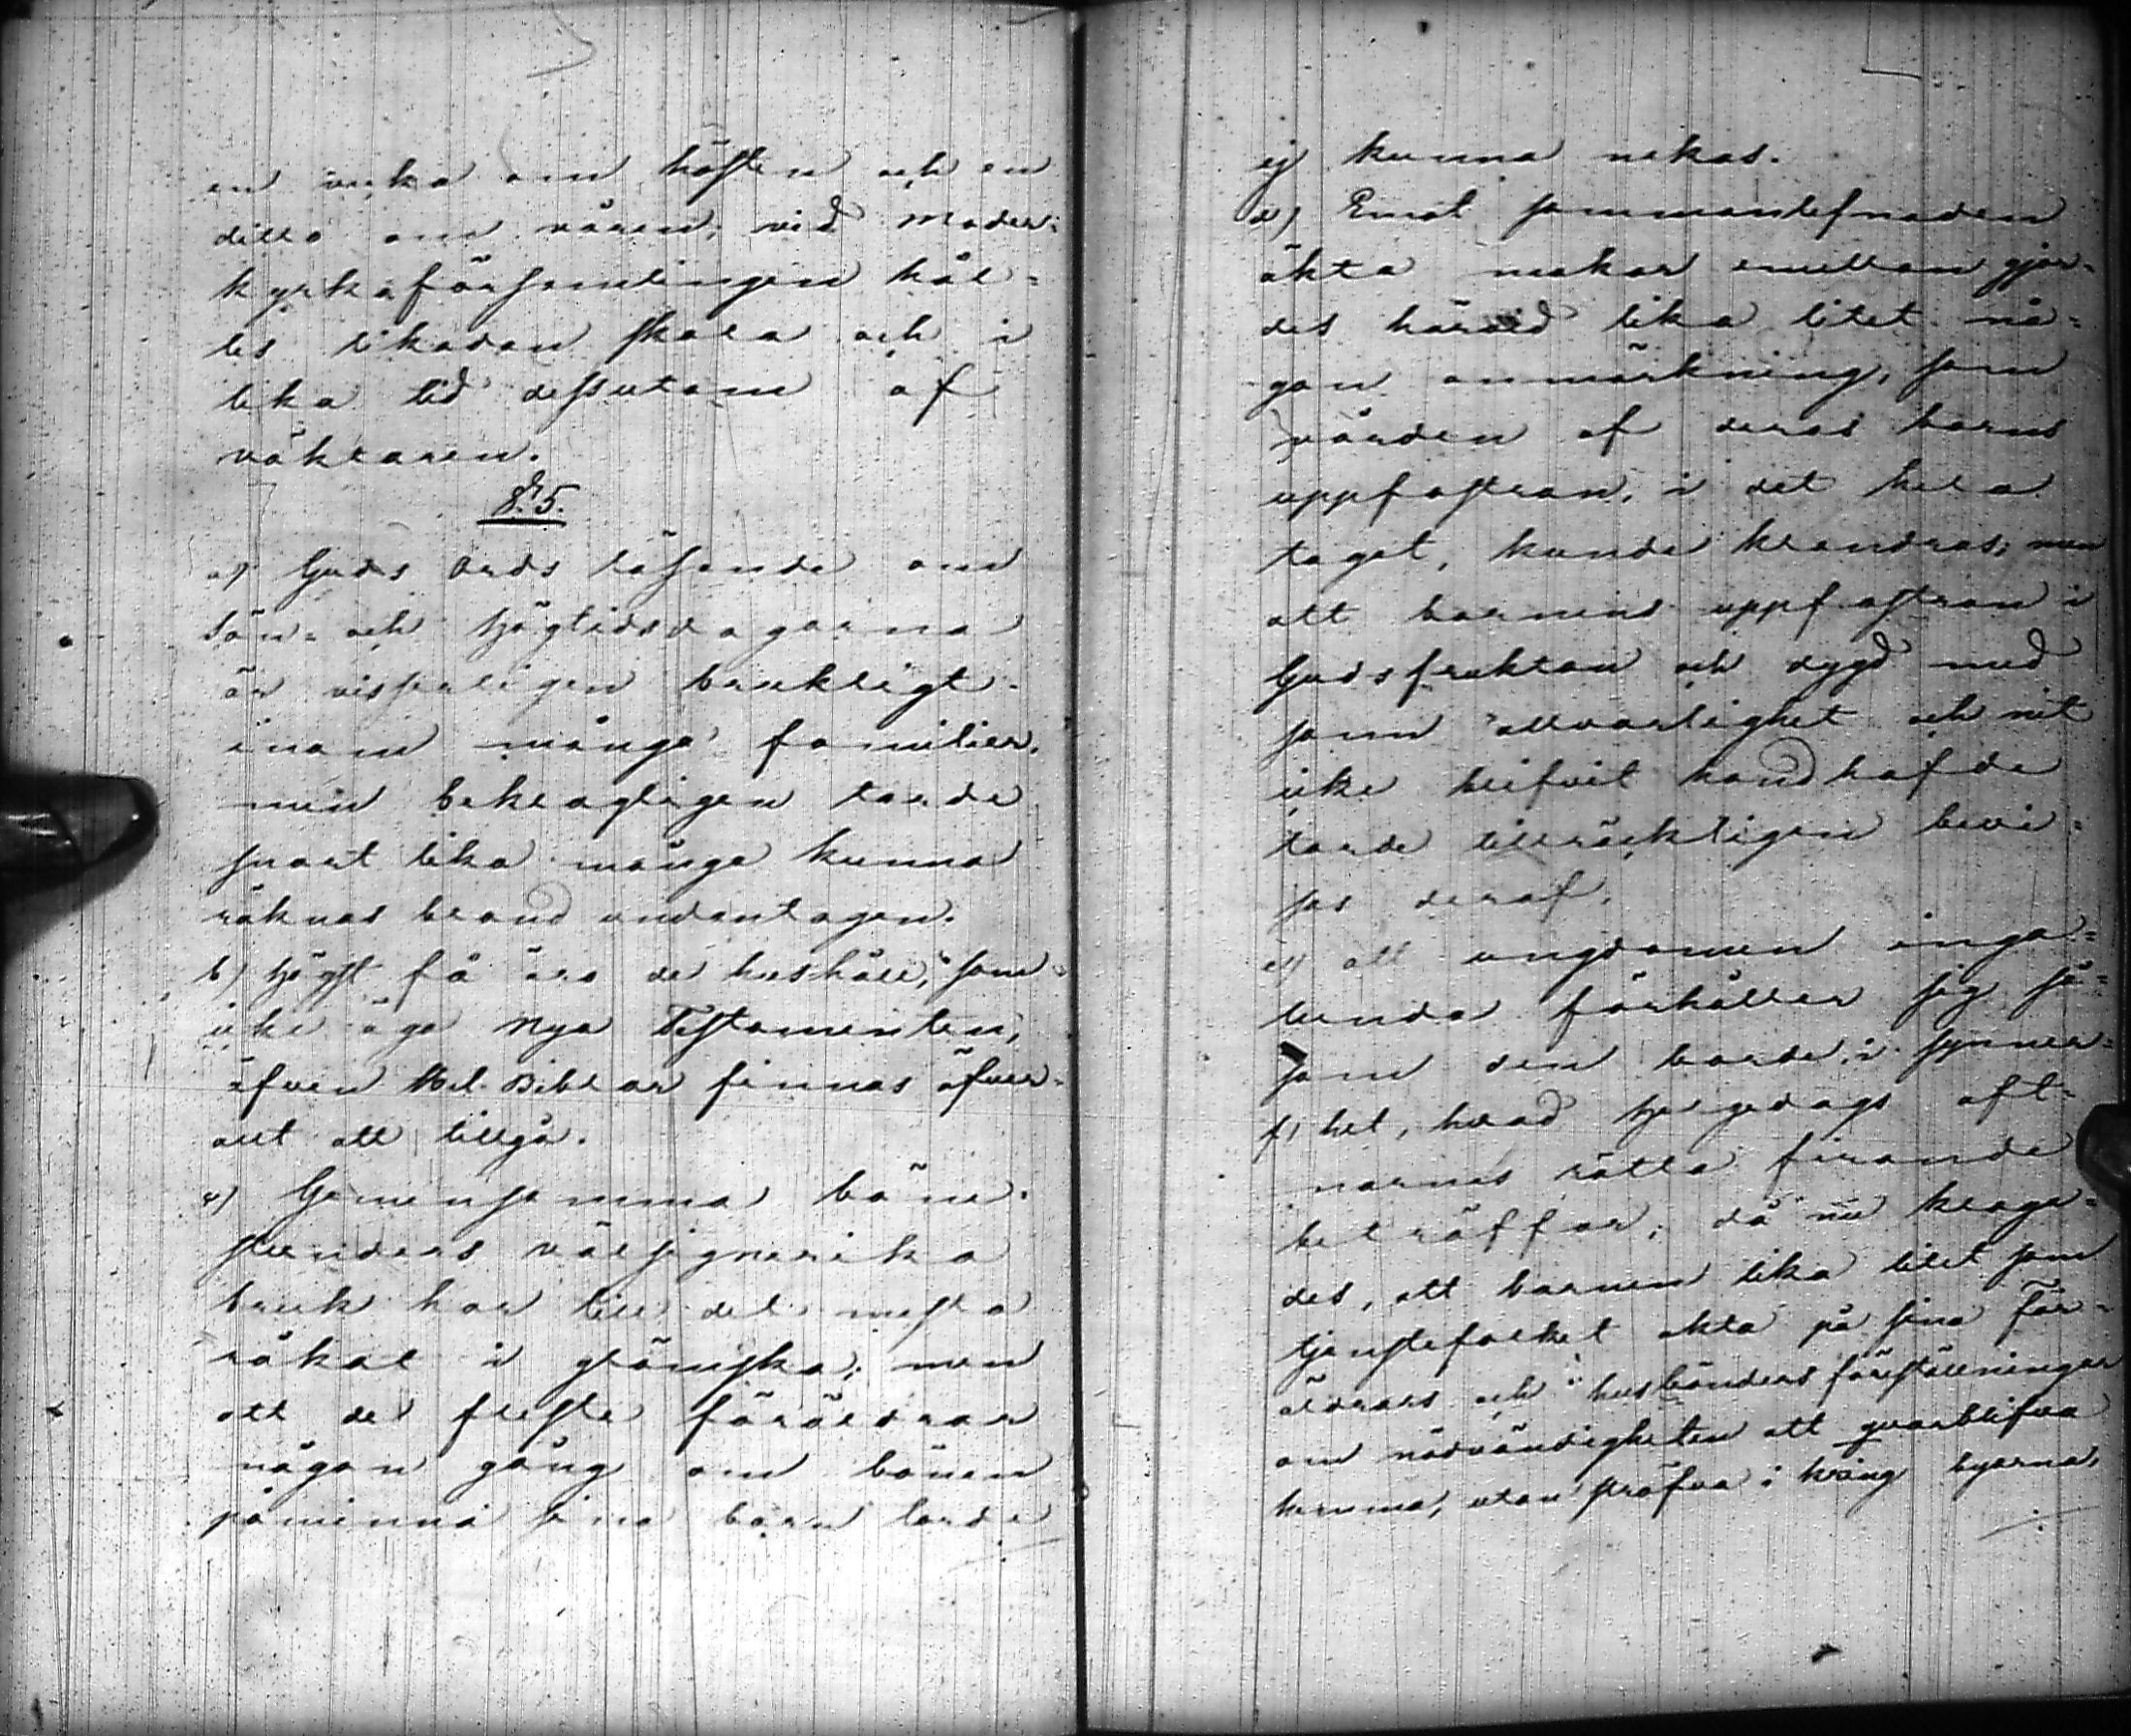 en vecka om hösten och en
ditto om våren, vid Moder-
kyrkoförsamlingen hål-
les likadan skola och i
lika tid dessutom af
väktaren.
§. 5.
a) Guds Ords läsande om
Sön- och Högtidsdagarna
är visserligen brukligt
inom många familier,
men beklagligen torde
snart lika många kunna
räknas bland undantagen.
b) Högst få äro de hushåll, som
icke äga Nya Testamenten,
äfven Hel. Biblar finnas öfver-
alt att tillgå.
c) Gemensamma böne-
stunders välsignerika
bruk har till det mesta
råkat i glömska; men
att de fleste föräldrar
någon gång om bönen
påminna sina barn torde
ej kunna nekas.
d) Emot sammanlefnaden
äkta makar emellan gjor-
des härvid lika litet nå-
gon anmärkning, som
vården af deras barns
uppfostran, i det hela
taget, kunde klandras; men
att barnens uppfostran i
Gudsfruktan och dygd med
sann allvarlighet och nit
icke blifvit handhafde
torde tillräckligen bevi-
sas deraf,
e) att ungdomen inga-
lunda förhåller sig så-
som den borde, i synner-
f) het, hvad Helgedags aft-
narnes rätta firande
beträffar; då nu klaga-
des, att barnen lika litet som
tjenstefolket akta på sina för-
äldrars och husbönders föreställningar
om nödvändigheten att qvarblifva
hemma, utan ströfva i kring byarna,